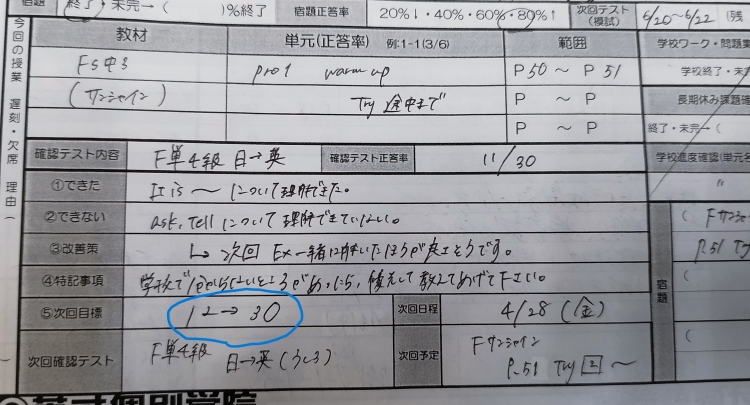 宿題 終了・未完→( )%終了 宿題正答率 20%↓・40%・60%・80%↑ 次回テスト(模試) 6/20~6/22 (残
今回の授業 遅刻・欠席 理由( )
教材 単元(正答率) 例:1-1(3/6) 範囲 学校ワーク・問題集
FS中3 pro1 warm up P 50 ~ P 51 学校終了・未
(サンシャイン) Try 途中まで P ~ P 長期休み課題確
P ~ P 終了・未完→(
確認テスト内容 F単4級 日→英 確認テスト正答率 11/30 学校進度確認(単元名
①できた It is ~ について理解できた。
②できない ask, tell について理解できていない。
③改善策 ↳ 次回 Ex一緒に解いたほうが良さそうです。
④特記事項 学校で分からないところがあったら、優先して教えてあげて下さい。
⑤次回目標 12→30 次回日程 4/28 (金)
次回確認テスト F単4級 日→英(うしろ) 次回予定 Fサンシャイン P.51 Try 2 ~
宿題 ( Fサンシャ
P.51 Try
英才個別学院